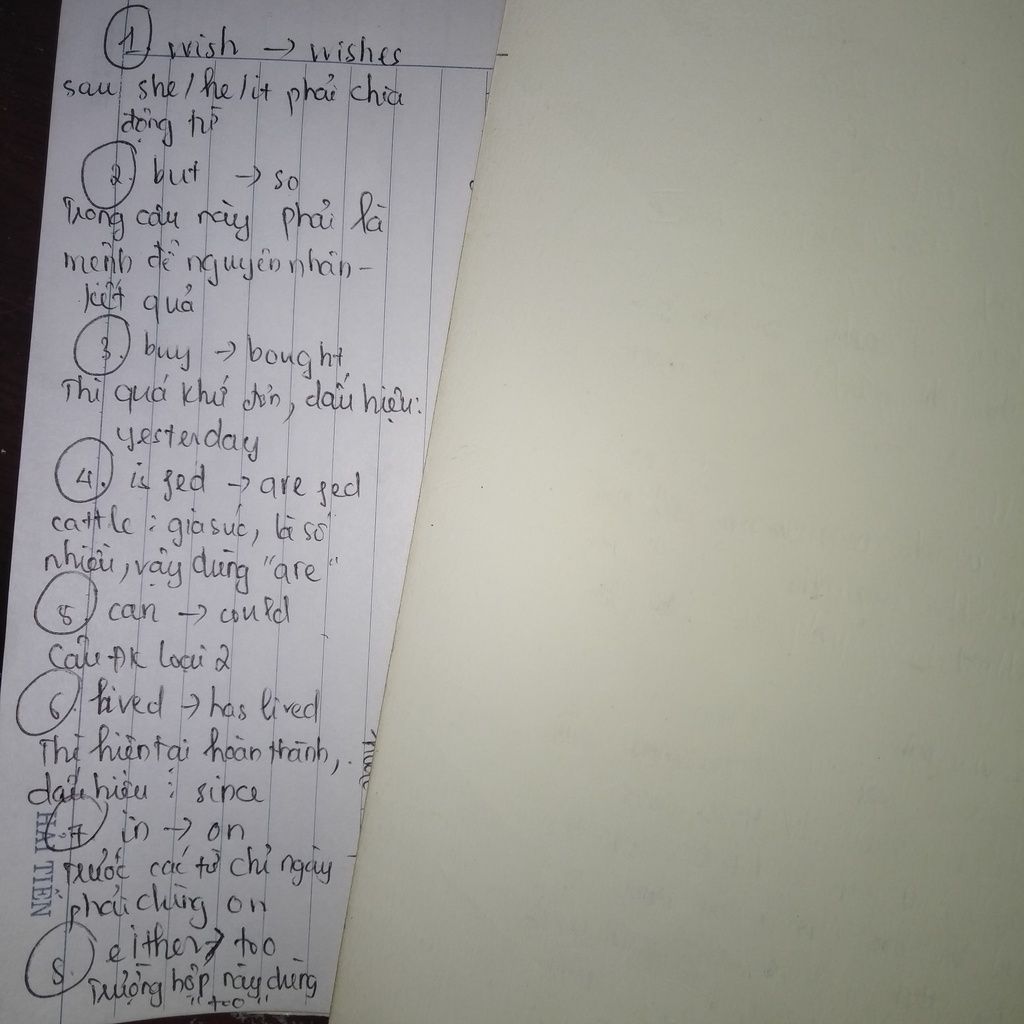 1 wish → wishes
sau she/he/it phải chia
động từ
2. but → so
Trong câu này phải là
mệnh đề nguyên nhân -
kết quả
3. buy → bought
Thì quá khứ đơn, dấu hiệu:
yesterday
4. is fed → are fed
cattle : gia súc, là số
nhiều, vậy dùng "are"
5. can → could
Câu ĐK loại 2
6. lived → has lived
Thì hiện tại hoàn thành,
dấu hiệu : since
7 in → on
Trước các từ chỉ ngày
phải dùng on
8. either → too
Trường hợp này dùng
"too"
HẢI TIẾN